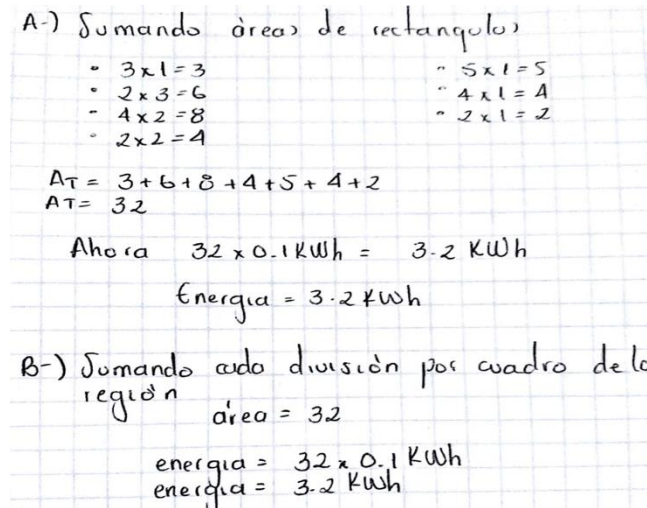 A-) Sumando áreas de rectangulos
- 3x1=3
- 2x3=6
- 4x2=8
- 2x2=4
- 5x1=5
- 4x1=4
- 2x1=2
AT = 3+6+8+4+5+4+2
AT= 32
Ahora 32 x 0.1KWh = 3.2 KWh
Energia = 3.2 KWh
B-) Sumando cada división por cuadro de la
región
área = 32
energia = 32 x 0.1 KWh
energia = 3.2 KWh